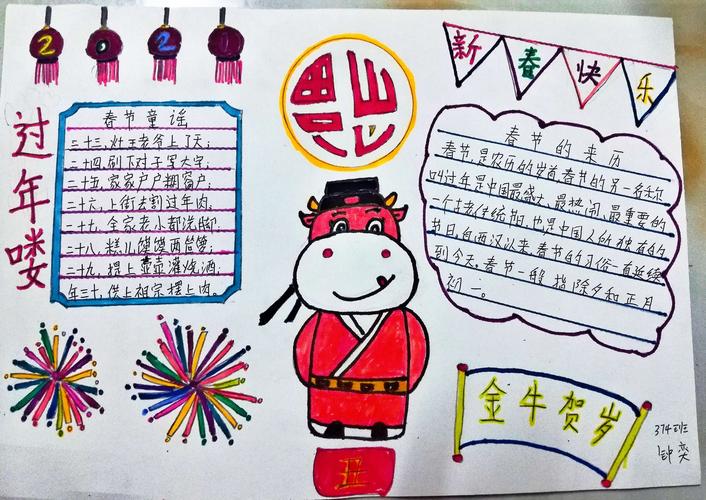 2021
新春快乐
过年喽
春节童谣
二十三,灶王老爷上了天;
二十四,割下对子写大字;
二十五,家家户户捆窗户;
二十六,上街去割过年肉,
二十七,全家老小都洗脚.
二十八,糕儿馍馍两笸箩;
二十九,提上壶壶灌烧酒.
年三十,供上祖宗摆上肉.
春节的来历
春节,是农历的岁首,春节的另一名称
叫过年是中国最盛大、最热闹、最重要的
一个古老传统节日,也是中国人的独有的
节日,自西汉以来,春节的习俗一直延续
到今天。春节一般指除夕和正月
初一。
金牛贺岁
丑
374班
钟奕